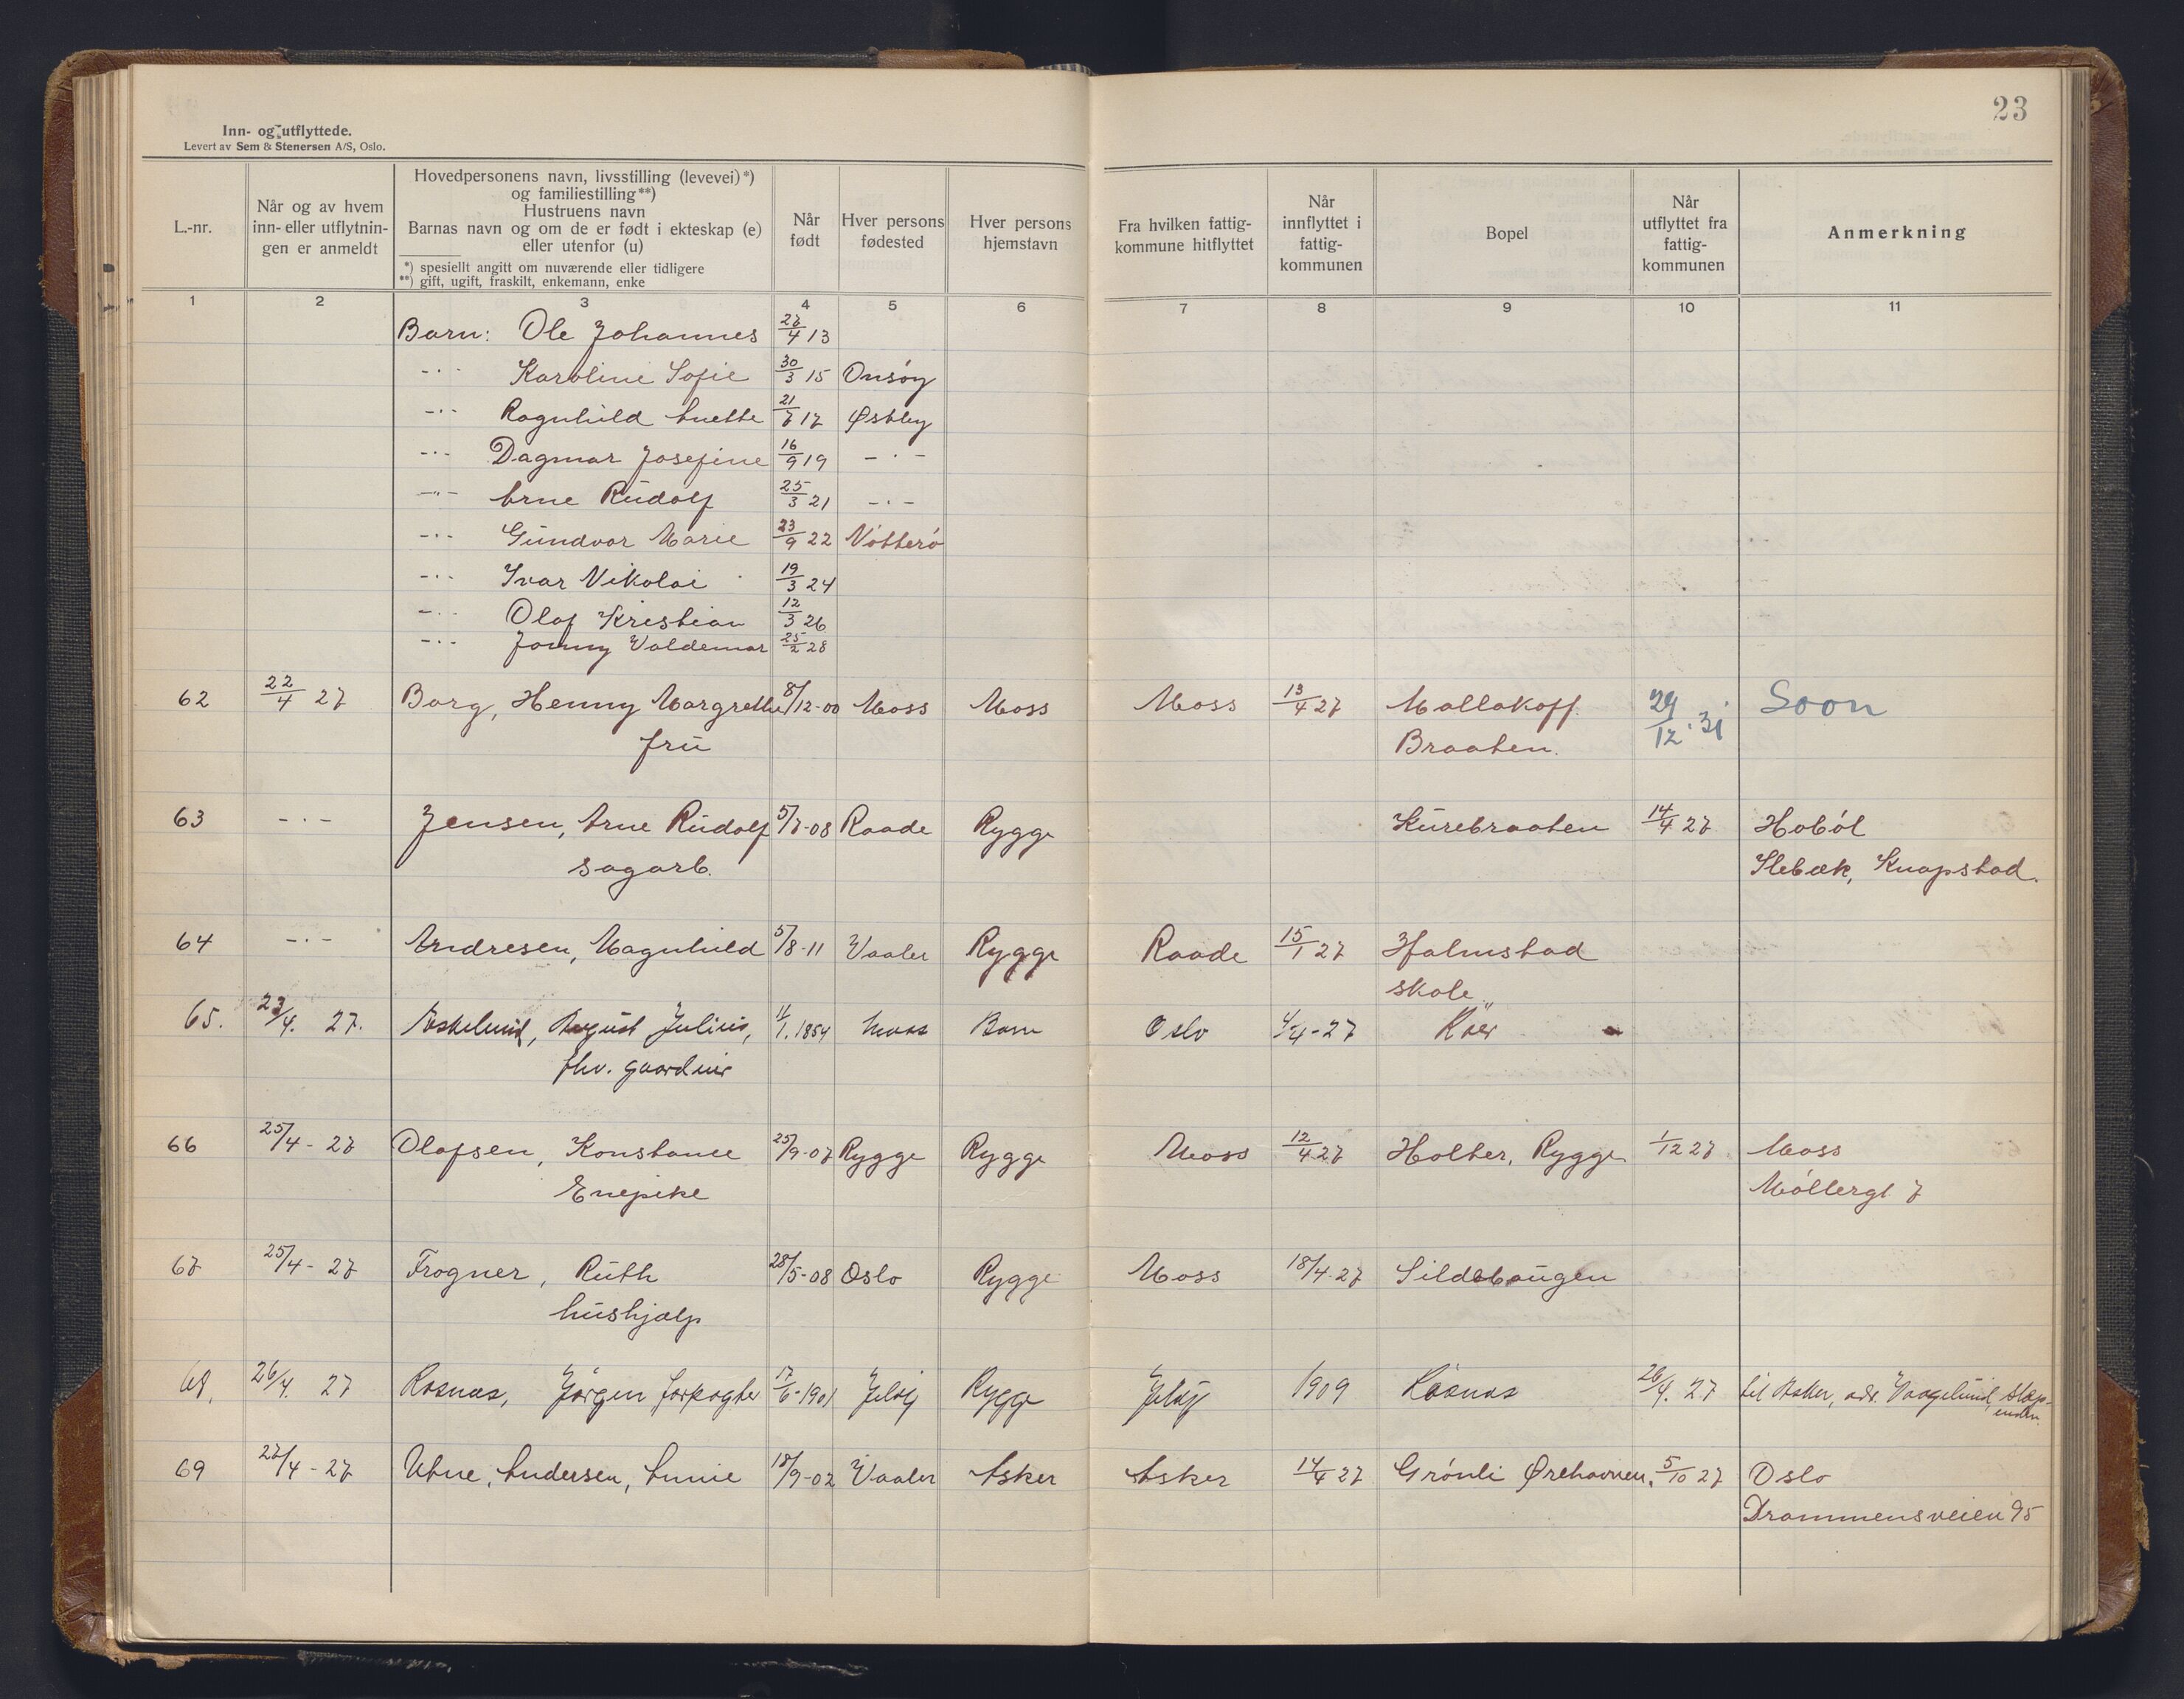 23
Inn- og utflyttede.
Levert av Sem & Stenersen A/S, Oslo.
L.-nr.
Når og av hvem
inn- eller utflytnin-
gen er anmeldt
Hovedpersonens navn, livsstilling (levevei)*)
og familiestilling**)
Hustruens navn
Barnas navn og om de er født i ekteskap (e)
eller utenfor (u)
*) spesiellt angitt om nuværende eller tidligere
**) gift, ugift, fraskilt, enkemann, enke
Når
født
Hver persons
fødested
Hver persons
hjemstavn
Fra hvilken fattig-
kommune hitflyttet
Når
innflyttet i
fattig-
kommunen
Bopel
Når
utflyttet fra
fattig-
kommunen
Anmerkning
1 2 3 4 5 6 7 8 9 10 11
Barn: Ole Johannes 27/4 13
-·- Karoline Sofie 30/3 15 Onsöy
-·- Ragnhild Anette 21/7 17 Østby
-·- Dagmar Josefine 16/9 19 -·-
-·- Arne Rudolf 25/3 21 -·-
-·- Gundvor Marie 23/9 22 Nötterö
-·- Ivar Nikolai 19/3 24
-·- Olaf Kristian 12/3 26
-·- Jonny Valdemar 25/2 28
62 22/4 27 Borg, Henny Margrethe 8/12-00 Moss Moss Moss 13/4 27 Mallakoff 29/12·31 Soon
fru Braaten.
63 -·- Jensen, Arne Rudolf 5/7-08 Raade Rygge Kurebraaten 14/4 27 Hoböl
sagarb. Slebæk, Knapstad.
64 -·- Andresen, Magnhild 5/8-11 Vaaler Rygge Raade 15/1 27 Halmstad
skole
65. 23/4. 27. Eskelund, August Julius, 11/1.1854 Moss Oslo 4/4-27 Käer
fhv. gaardeier
66 25/4-27 Olafsen, Konstance 25/9-07 Rygge Rygge Moss 12/4 27 Holter, Rygge 1/12 27 Moss
Enepike Möllergt 7
67 25/4-27 Frogner, Ruth 28/5-08 Oslo Rygge Moss 18/4-27 Sildebaugen
hushjælp
68. 26/4. 27 Rosnæs, Jörgen forpagter 17/6-1901 Jelöy Rygge Jelöy 1909 Rosnæs 26/4. 27 til Asker, adr. Vaagelund, Slep-
enden.
69 27/4-27 Utne, Andersen, Annie 18/9-02 Vaaler Asker Asker 14/4 27 Grönli Ørehavnen. 5/10 27 Oslo
Drammensveien 95